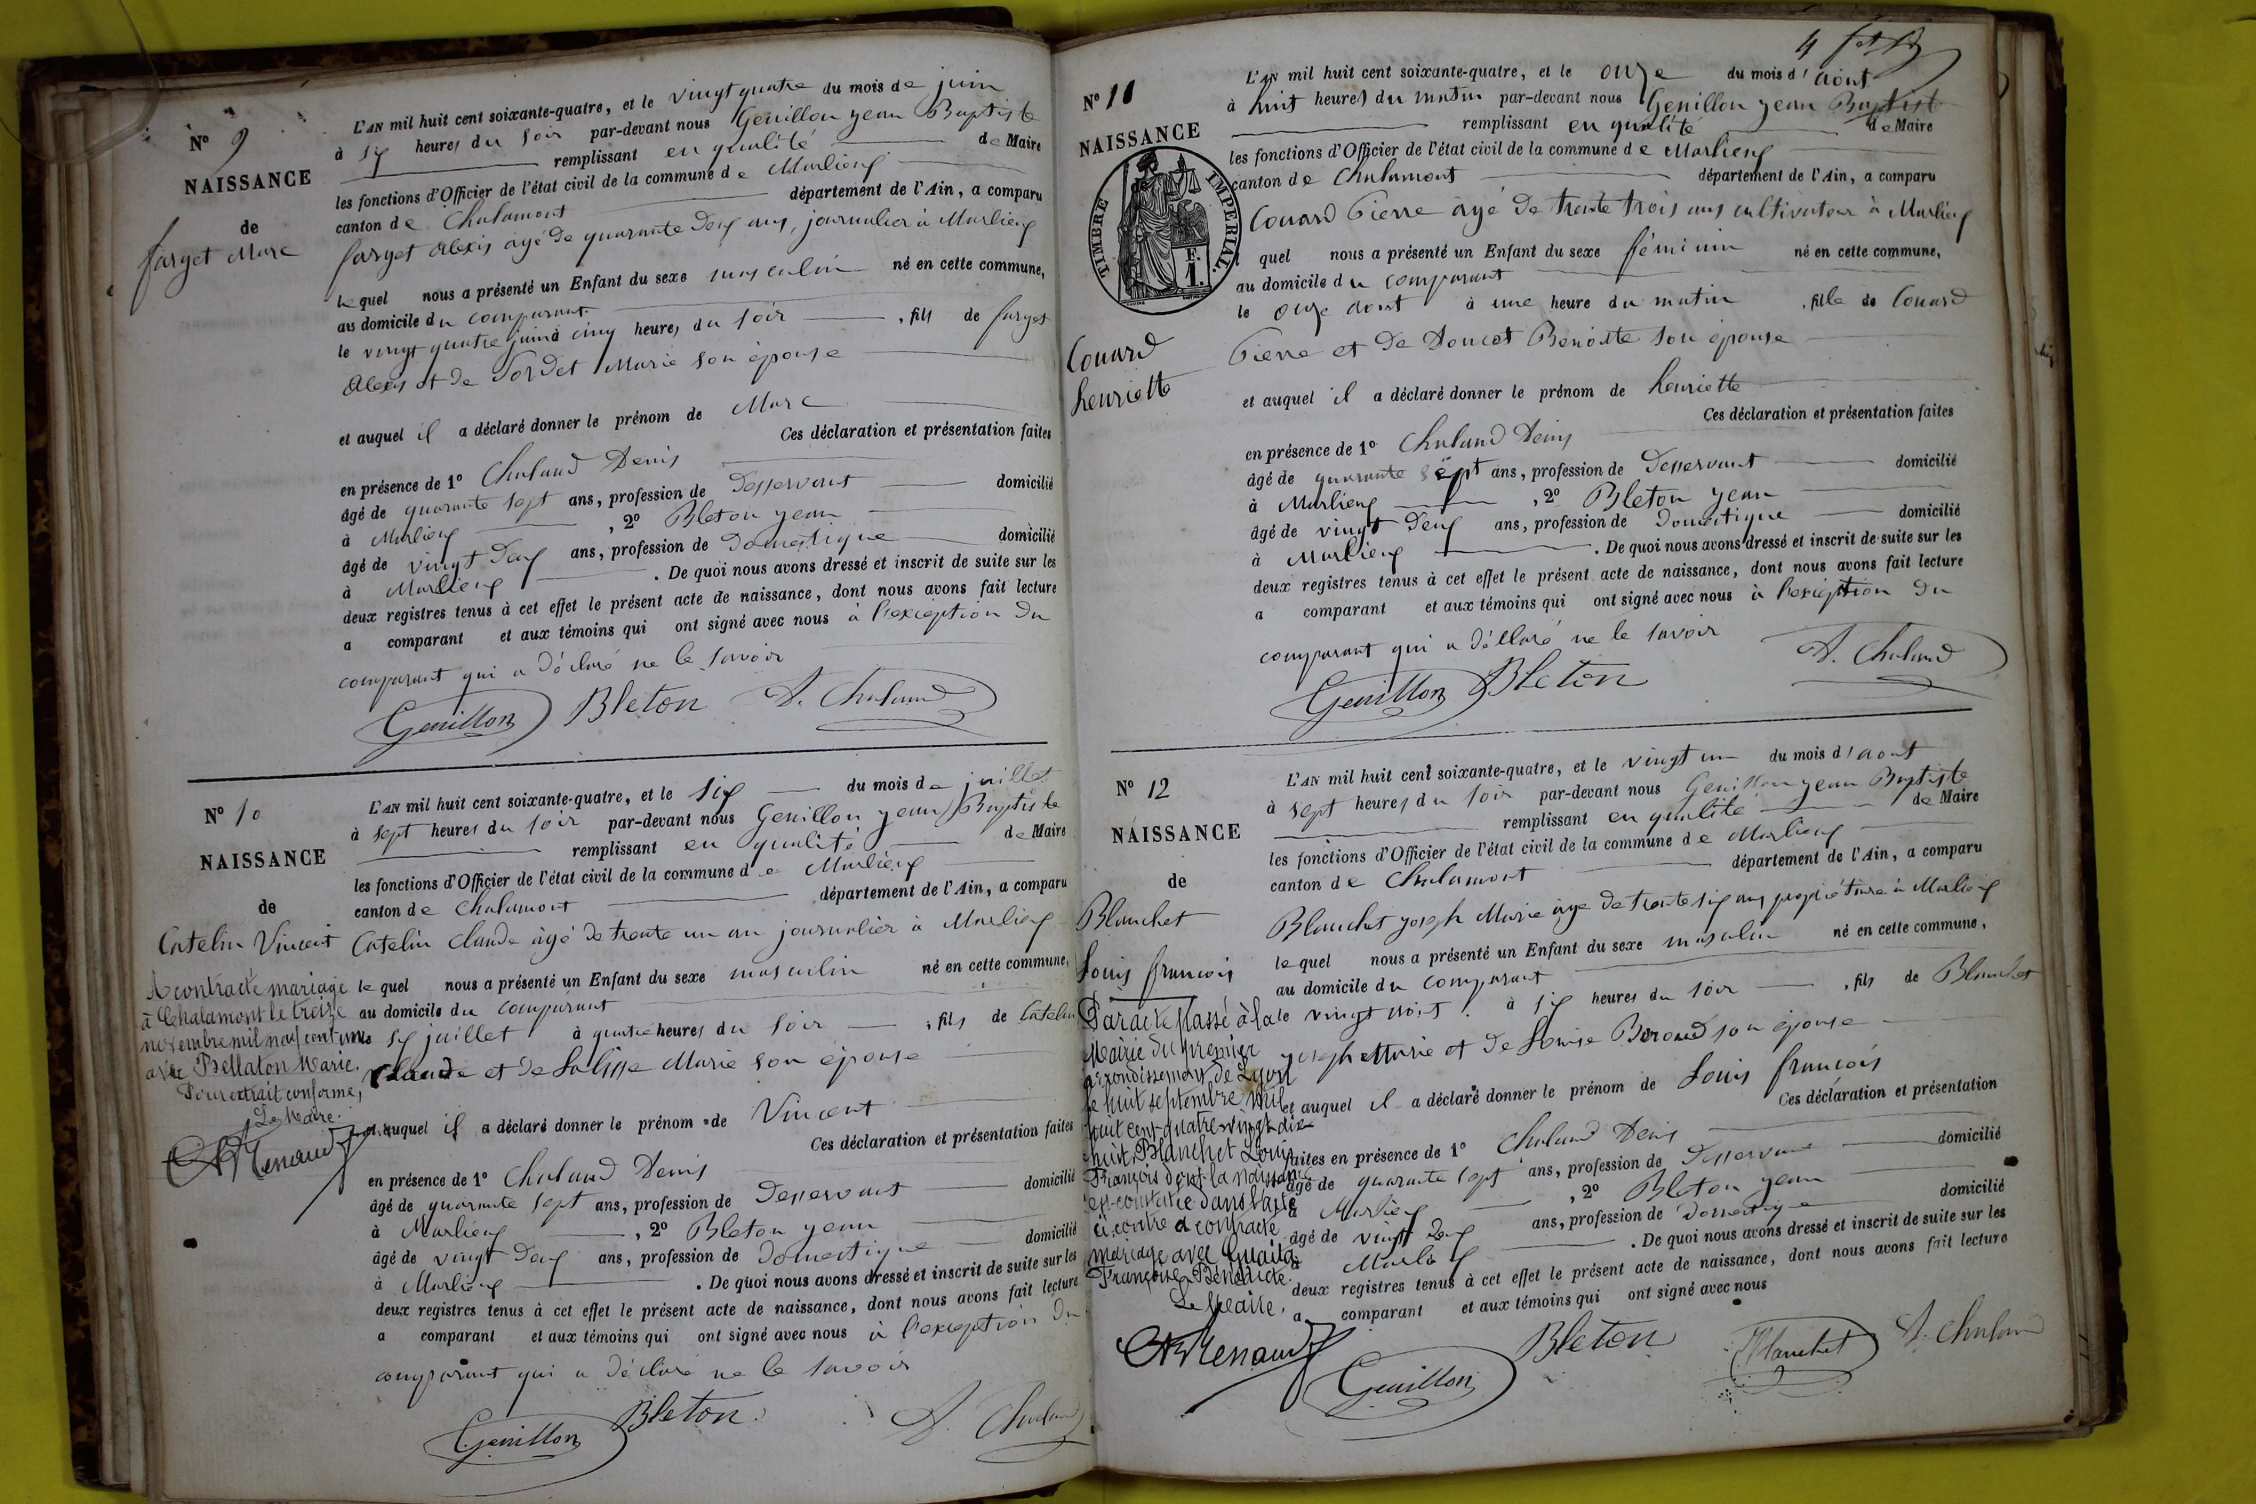 N° 9
NAISSANCE
de
farget Marc
L'AN mil huit cent soixante-quatre, et le vingt quatre du mois de juin
à six heures du soir par-devant nous Genillon jean Baptiste
remplissant en qualité de Maire
les fonctions d'Officier de l'état civil de la commune de Marlieux
canton de Chalamont département de l'Ain, a comparu
farget alexis âgé de quarante deux ans, journalier à Marlieux
lequel nous a présenté un Enfant du sexe masculin né en cette commune,
au domicile du comparant
le vingt quatre juin à cinq heures du soir , fils de farget
Alexis et de Tordet Marie son épouse
et auquel il a déclaré donner le prénom de Marc
Ces déclaration et présentation faites
en présence de 1° Chaland Denis
âgé de quarante sept ans, profession de Desservant domicilié
à Marlieux , 2° Bleton jean
âgé de vingt deux ans, profession de Domestique domicilié
à Marlieux . De quoi nous avons dressé et inscrit de suite sur les
deux registres tenus à cet effet le présent acte de naissance, dont nous avons fait lecture
a comparant et aux témoins qui ont signé avec nous à l'exception du
comparant qui a déclaré ne le savoir
Genillon Bleton D. Chaland
N° 10
NAISSANCE
de
Catelin Vincent
A contracté mariage
à Chalamont le treize
novembre mil neuf cent un
avec Bellaton Marie.
Pour extrait conforme,
Le Maire.
Renaud
L'AN mil huit cent soixante-quatre, et le six du mois de juillet
à sept heures du soir par-devant nous Genillon jean Baptiste
remplissant en qualité de Maire
les fonctions d'Officier de l'état civil de la commune de Marlieux
canton de Chalamont département de l'Ain, a comparu
Catelin Claude âgé de trente un an journalier à Marlieux
lequel nous a présenté un Enfant du sexe masculin né en cette commune,
au domicile du comparant
le six juillet à quatre heures du soir , fils de Catelin
Claude et de Salisse Marie son épouse
et auquel il a déclaré donner le prénom de Vincent
Ces déclaration et présentation faites
en présence de 1° Chaland Denis
âgé de quarante sept ans, profession de Desservant domicilié
à Marlieux , 2° Bleton jean
âgé de vingt deux ans, profession de Domestique domicilié
à Marlieux . De quoi nous avons dressé et inscrit de suite sur les
deux registres tenus à cet effet le présent acte de naissance, dont nous avons fait lecture
a comparant et aux témoins qui ont signé avec nous à l'exception du
comparant qui a déclaré ne le savoir
Genillon Bleton D. Chaland
4
N° 11
NAISSANCE
TIMBRE IMPERIAL.
F.
1.
Couard
henriette
L'AN mil huit cent soixante-quatre, et le onze du mois d'août
à huit heures du matin par-devant nous Genillon jean Baptiste
remplissant en qualité de Maire
les fonctions d'Officier de l'état civil de la commune de Marlieux
canton de Chalamont département de l'Ain, a comparu
Couard Pierre âgé de trente trois ans cultivateur à Marlieux
quel nous a présenté un Enfant du sexe féminin né en cette commune,
au domicile du comparant
le onze aout à une heure du matin , fille de Couard
Pierre et de Doucet Benoite son épouse
et auquel il a déclaré donner le prénom de henriette
Ces déclaration et présentation faites
en présence de 1° Chaland Denis
âgé de quarante sept ans, profession de Desservant domicilié
à Marlieux , 2° Bleton jean
âgé de vingt deux ans, profession de Domestique domicilié
à Marlieux . De quoi nous avons dressé et inscrit de suite sur les
deux registres tenus à cet effet le présent acte de naissance, dont nous avons fait lecture
a comparant et aux témoins qui ont signé avec nous à l'exception du
comparant qui a déclaré ne le savoir
Genillon Bleton D. Chaland
N° 12
NAISSANCE
de
Blanchet
Louis francois
Par acte passé à la
Mairie du premier
arrondissement de Lyon
le huit septembre mil
huit cent quatre vingt dix
huit, Blanchet Louis
François dont la naissance
est constatée dans l'acte
ci contre a contracté
mariage avec Guaita
Françoise Bénédicte.
Le Maire,
Renaud
L'AN mil huit cent soixante-quatre, et le vingt un du mois d'aout
à sept heures du soir par-devant nous Genillon jean Baptiste
remplissant en qualité de Maire
les fonctions d'Officier de l'état civil de la commune de Marlieux
canton de Chalamont département de l'Ain, a comparu
Blanchet joseph Marie âgé de trente six ans propriétaire à Marlieux
lequel nous a présenté un Enfant du sexe masculin né en cette commune,
au domicile du comparant
le vingt aout à six heures du soir , fils de Blanchet
joseph Marie et de Louise Beroud son épouse
et auquel il a déclaré donner le prénom de Louis francois
Ces déclaration et présentation
faites en présence de 1° Chaland Denis
âgé de quarante sept ans, profession de Desservant domicilié
à Marlieux , 2° Bleton jean
âgé de vingt deux ans, profession de Domestique domicilié
à Marlieux . De quoi nous avons dressé et inscrit de suite sur les
deux registres tenus à cet effet le présent acte de naissance, dont nous avons fait lecture
a comparant et aux témoins qui ont signé avec nous
Genillon Bleton Blanchet D. Chaland